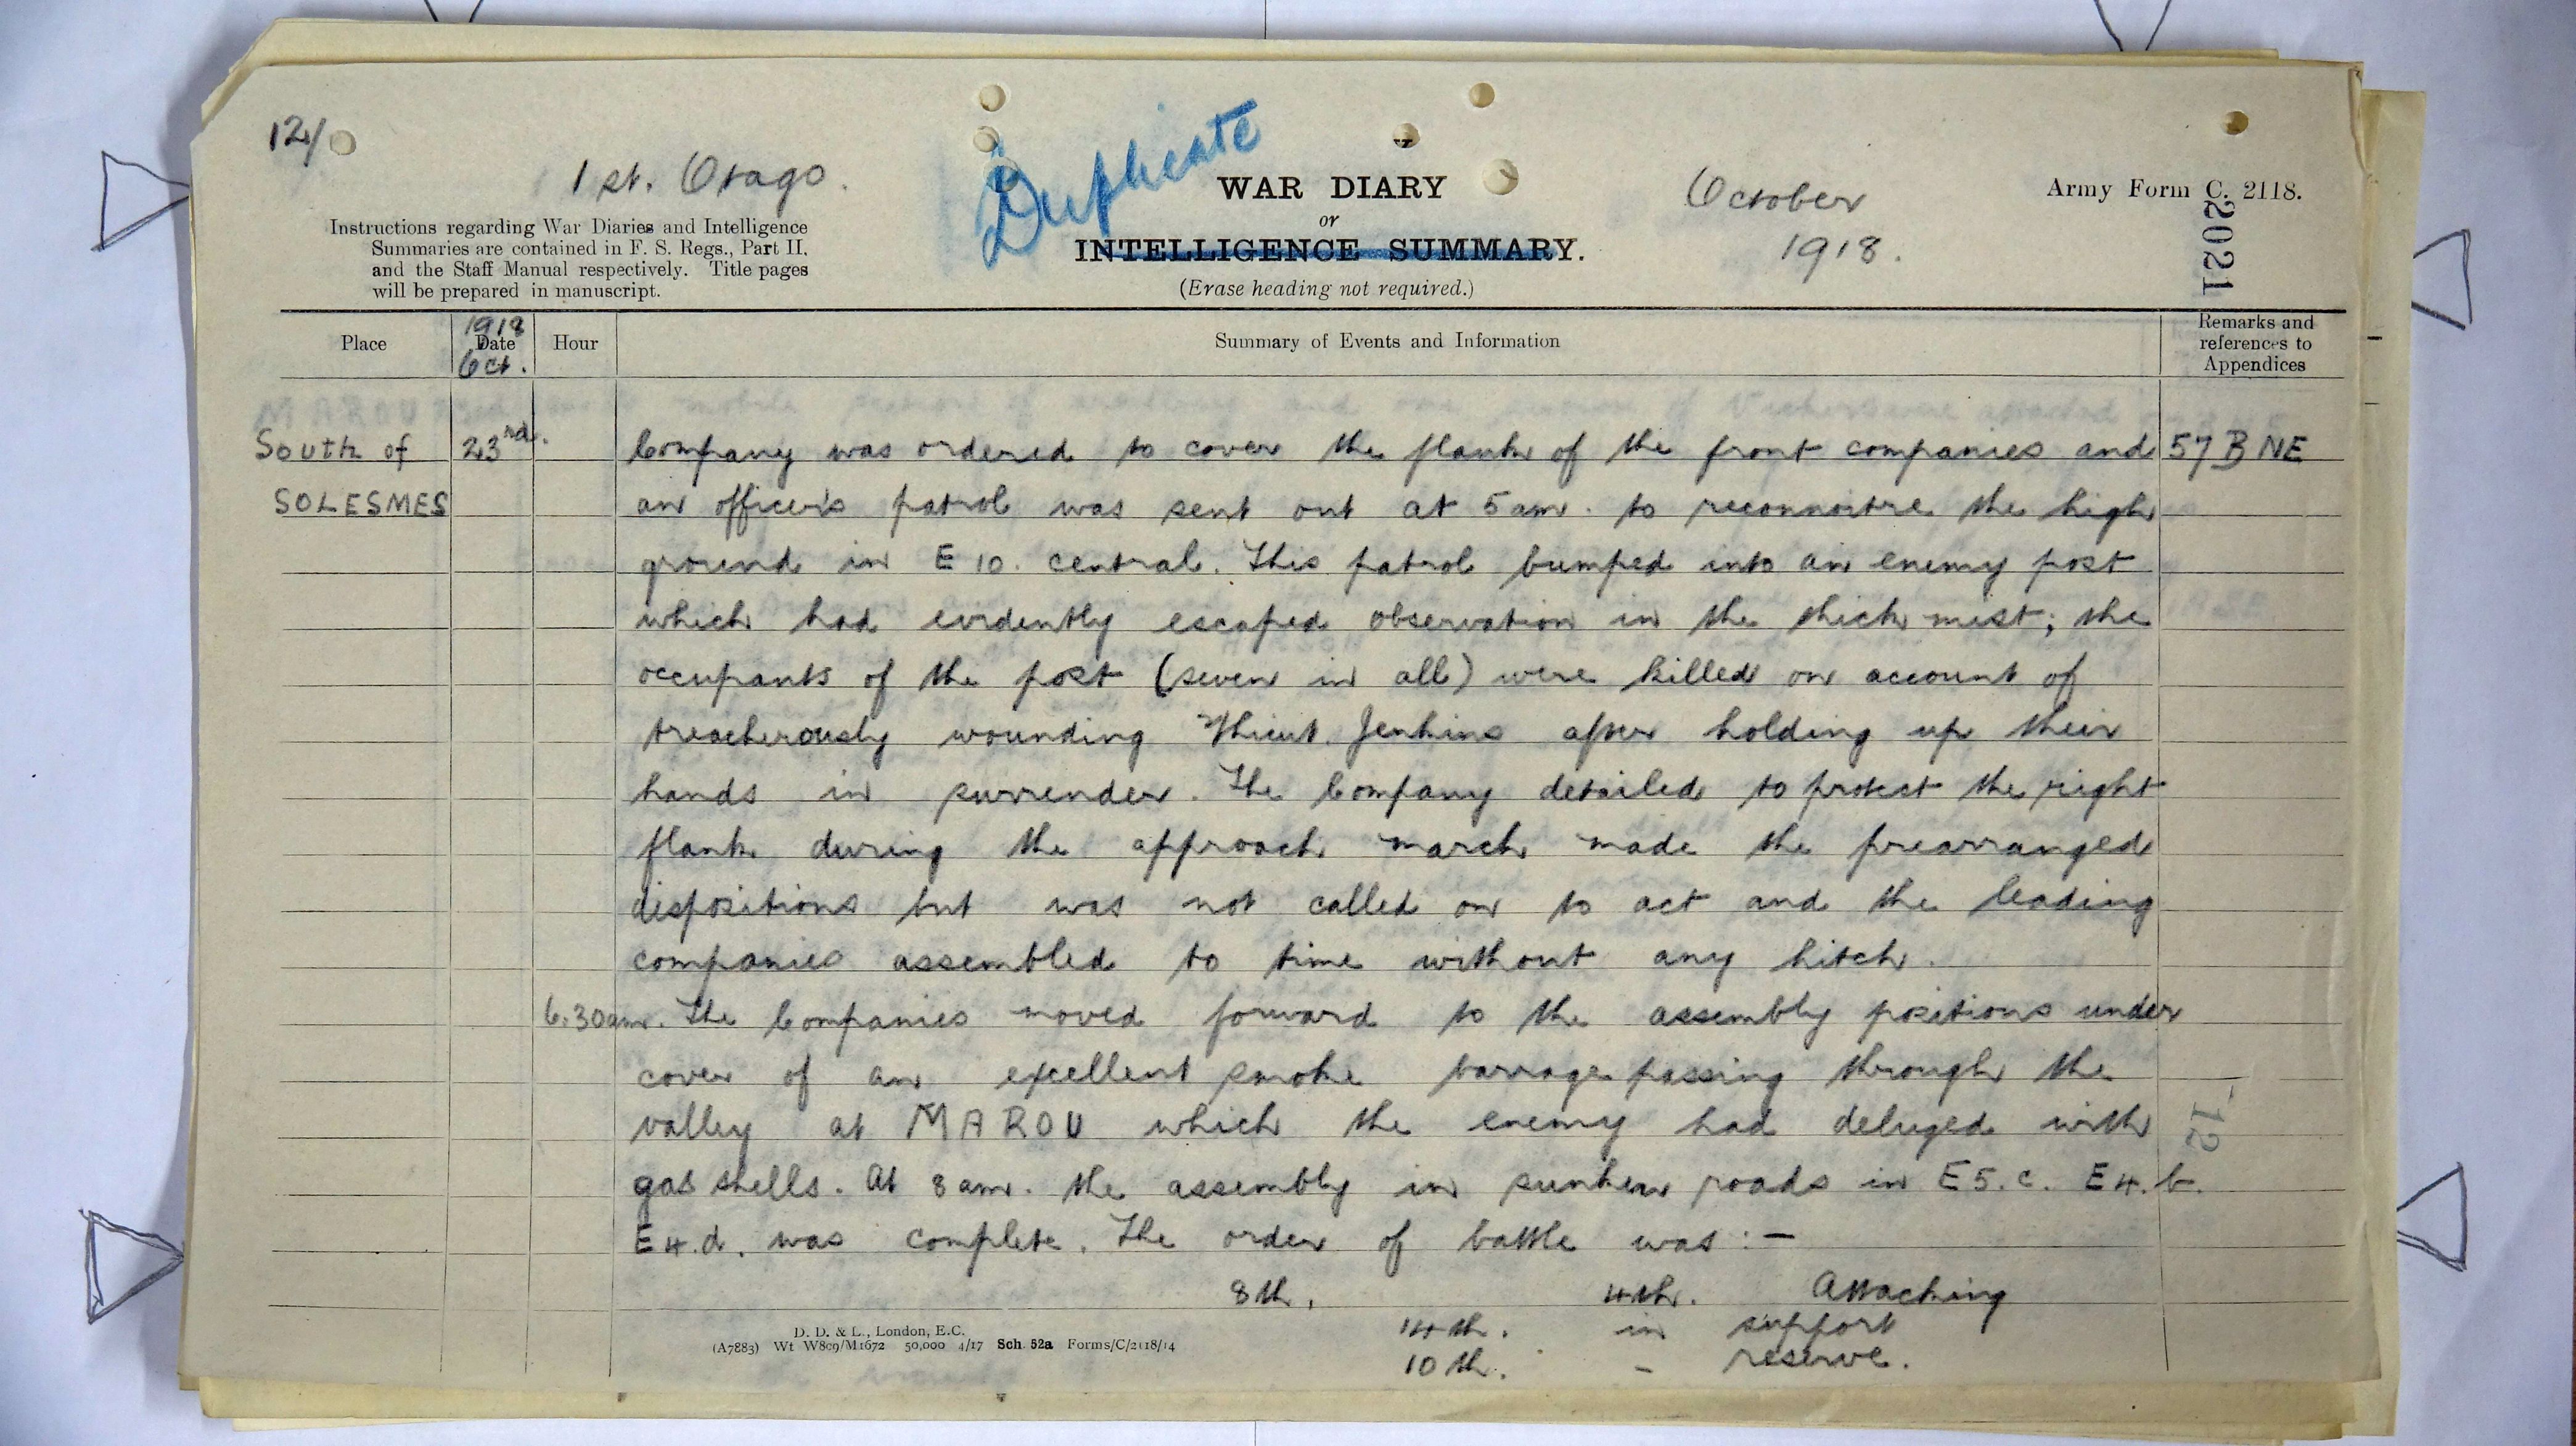 12/
1st. Otago.
Duplicate
WAR DIARY
or
INTELLIGENCE SUMMARY.
(Erase heading not required.)
October
1918.
Army Form C. 2118.
2021
Instructions regarding War Diaries and Intelligence
Summaries are contained in F. S. Regs., Part II.
and the Staff Manual respectively. Title pages
will be prepared in manuscript.
Place
1918
Date
Oct.
Hour
Summary of Events and Information
Remarks and
references to
Appendices
South of 23rd. Company was ordered to cover the flank of the front companies and 57 B NE
SOLESMES an officer's patrol was sent out at 5 am. to reconnoitre the high
ground in E 10. central. This patrol bumped into an enemy post
which had evidently escaped observation in the thick mist; the
occupants of the post (seven in all) were killed on account of
treacherously wounding Jenkins after holding up their
hands in surrender. The Company detailed to protect the right
flank during the approach march made the prearranged
dispositions but was not called on to act and the leading
companies assembled to time without any hitch.
6.30am. The Companies moved forward to the assembly positions under
cover of an excellent smoke barrage passing through the
valley at MAROU which the enemy had deluged with
gas shells. At 8 am. the assembly in sunken roads in E5.c. E4.b.
E4.d. was complete. The order of battle was :-
8th. 4th. Attacking
14th. in support
10th. - reserve.
-12
D. D. & L., London, E.C.
(A7883) Wt W809/M1672 50,000 4/17 Sch. 52a Forms/C/2118/14